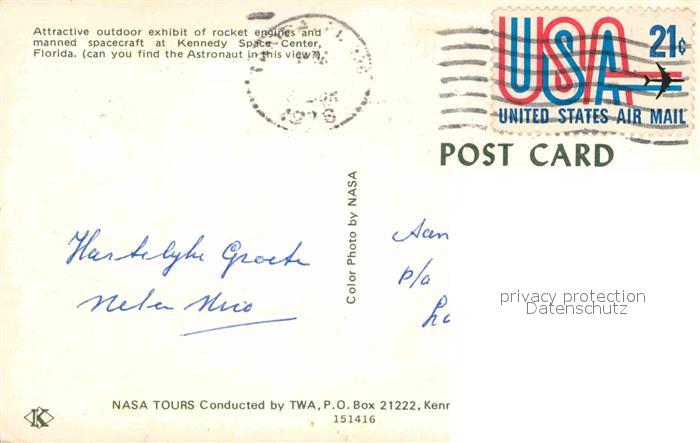 Attractive outdoor exhibit of rocket engines and
manned spacecraft at Kennedy Space Center,
Florida. (can you find the Astronaut in this view?)
1976
USA 21c
UNITED STATES AIR MAIL
POST CARD
Color Photo by NASA
Hartelyke Groeten
Nel en Nico
Aan
p/a
privacy protection
Datenschutz
K
NASA TOURS Conducted by TWA, P.O. Box 21222, Kenn
151416